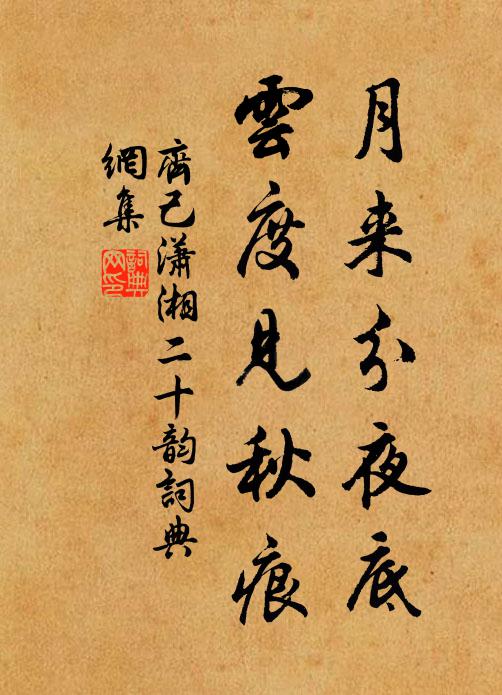 月来分夜底
雲度見秋痕
齊己瀟湘二十韵詞典
網集
詞典
网印